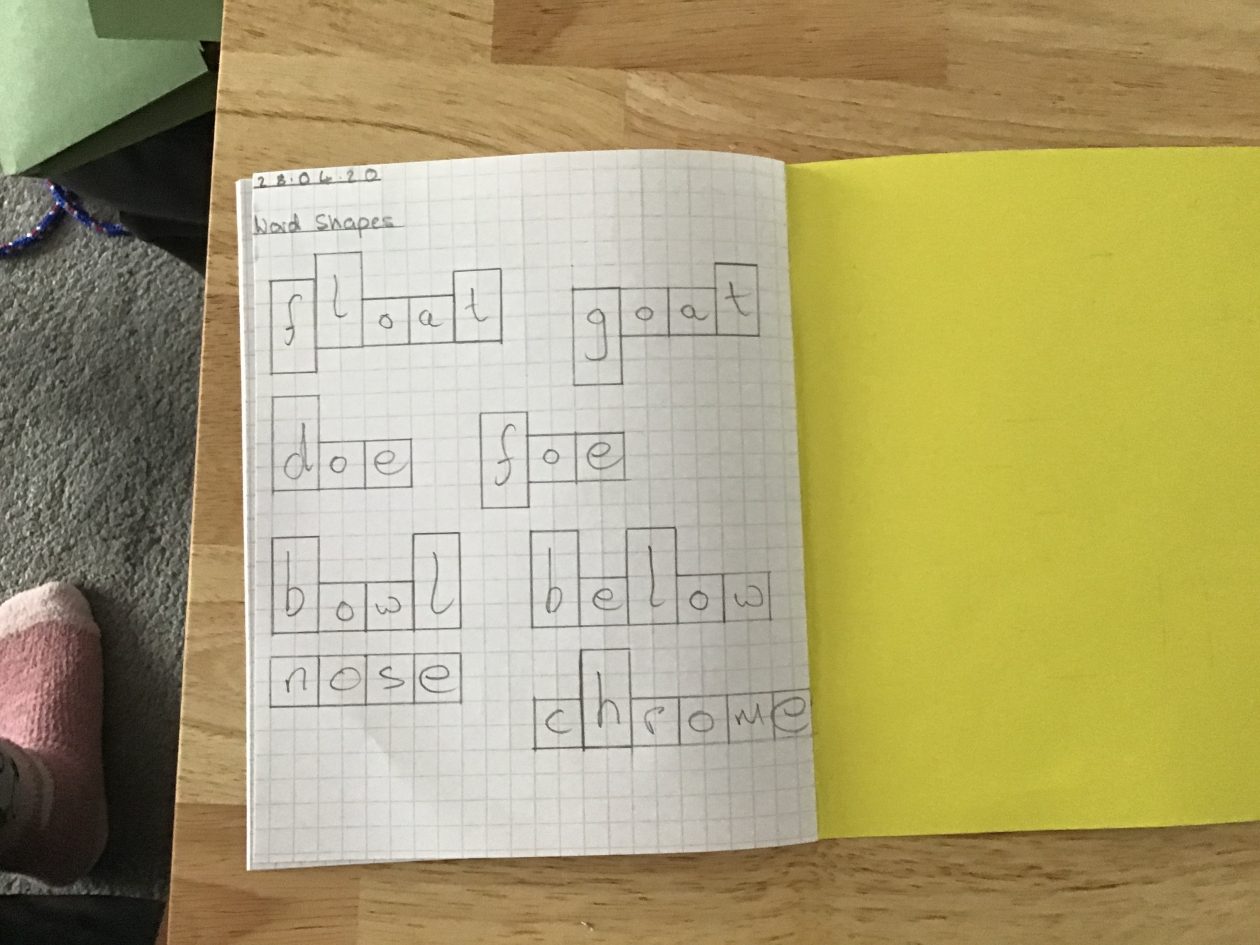 28.04.20
Word Shapes
float goat
doe foe
bowl below
nose chrome